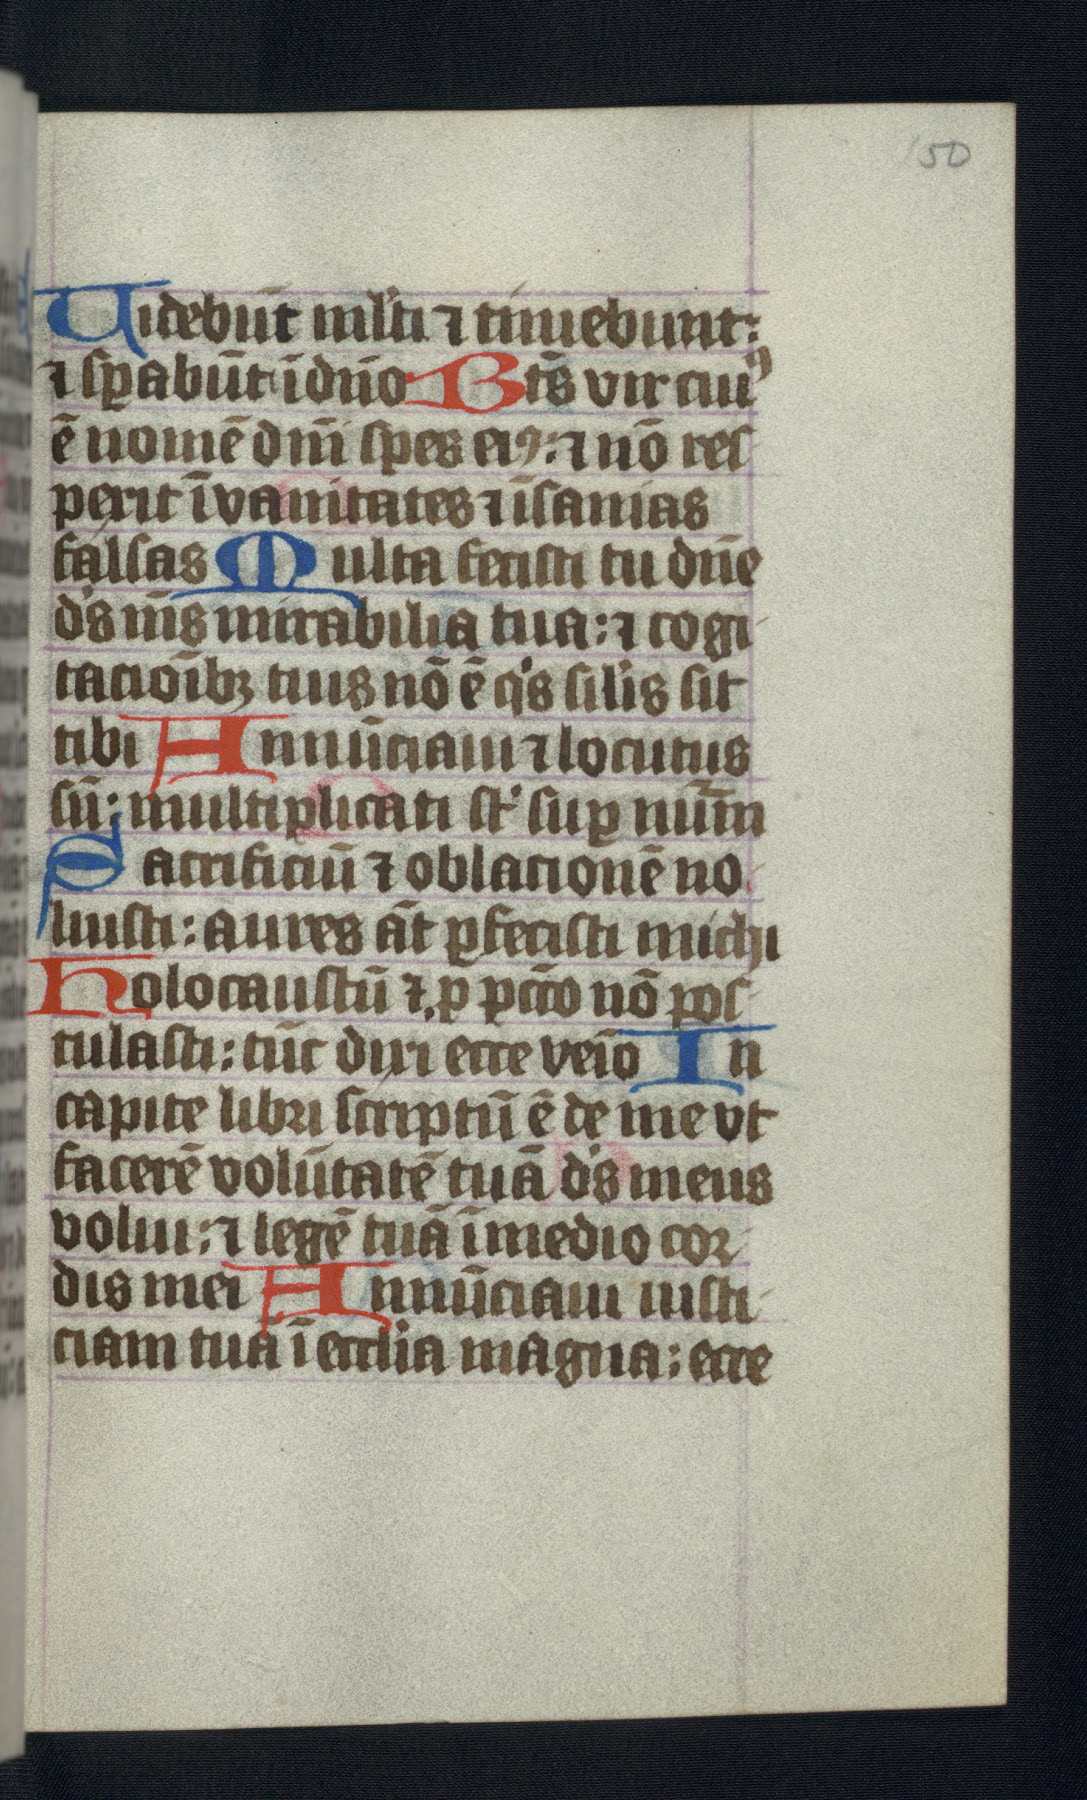 150
Uidebūt ml'ti ⁊ timebunt:
⁊ sꝑabūt ī dn̄o Bt̄s vir cuiꝰ
ē nomē dn̄i spes eiꝰ: ⁊ nō res
perit ī vanitates ⁊ īsanias
falsas Multa fecisti tu dn̄e
d's m̄s mirabilia tua: ⁊ cogi
tacioībꝫ tuis nō ē q's silīs sit
tibi Annūciaui ⁊ locutus
sū: multiplicati st' suꝑ nūm
Sacrificiū ⁊ oblacionē no
luisti: aures āt ꝑfecisti michi
Holocaustū ⁊ ꝓ pcc̄o nō pos
tulasti: tūc dixi ecce veīo In
capite libri scriptū ē de me vt
facerē volūtatē tuā d's meus
volui: ⁊ legē tuā ī medio cor
dis mei Annūciaui iusti
ciam tuā ī eccl'ia magna: ecce